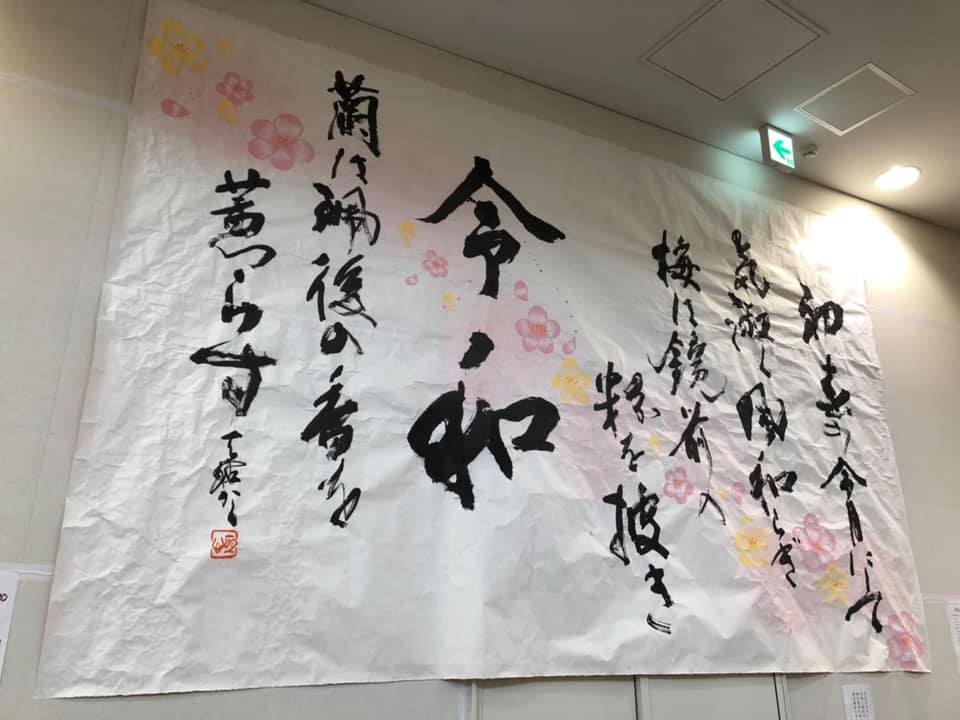 初春の令月にして
気淑く風和らぎ
梅は鏡前の
粉を披き
令和
蘭は珮後の香を
薫らす